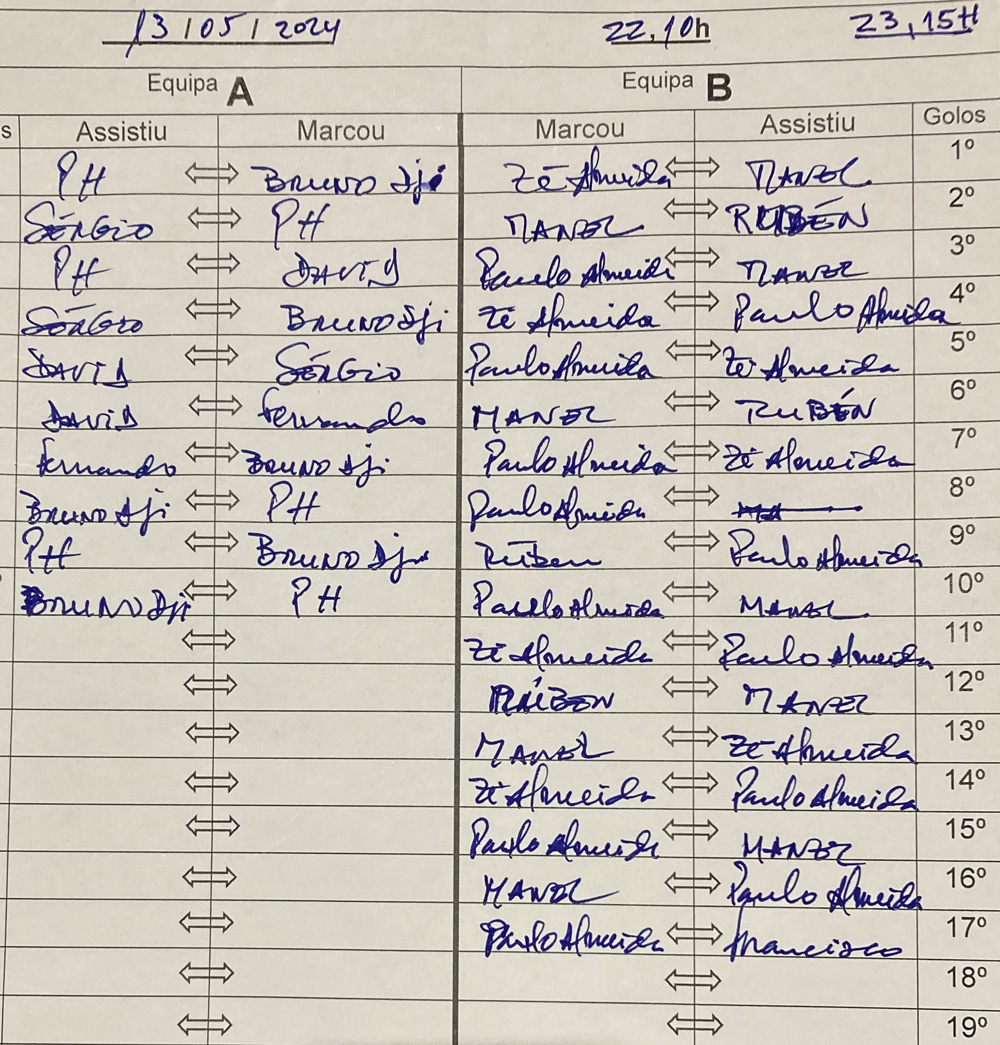 13/05/2024 22,10h 23,15H
Equipa A Equipa B
s Assistiu Marcou Marcou Assistiu Golos
PH ⇔ BRUNO Dji Zé Almeida ⇔ MANEL 1º
SÉRGIO ⇔ PH MANEL ⇔ RUBÉN 2º
PH ⇔ DAVID Paulo Almeida ⇔ MANEL 3º
SÉRGIO ⇔ BRUNO Dji Zé Almeida ⇔ Paulo Almeida 4º
DAVID ⇔ SÉRGIO Paulo Almeida ⇔ Zé Almeida 5º
DAVID ⇔ Fernando MANEL ⇔ RUBÉN 6º
Fernando ⇔ BRUNO Dji Paulo Almeida ⇔ Zé Almeida 7º
BRUNO Dji ⇔ PH Paulo Almeida ⇔ 8º
PH ⇔ BRUNO Dji Rúben ⇔ Paulo Almeida 9º
BRUNO Dji ⇔ PH Paulo Almeida ⇔ MANEL 10º
⇔ Zé Almeida ⇔ Paulo Almeida 11º
⇔ RÚBEN ⇔ MANEL 12º
⇔ MANEL ⇔ Zé Almeida 13º
⇔ Zé Almeida ⇔ Paulo Almeida 14º
⇔ Paulo Almeida ⇔ MANEL 15º
⇔ MANEL ⇔ Paulo Almeida 16º
⇔ Paulo Almeida ⇔ Francisco 17º
⇔ ⇔ 18º
⇔ ⇔ 19º